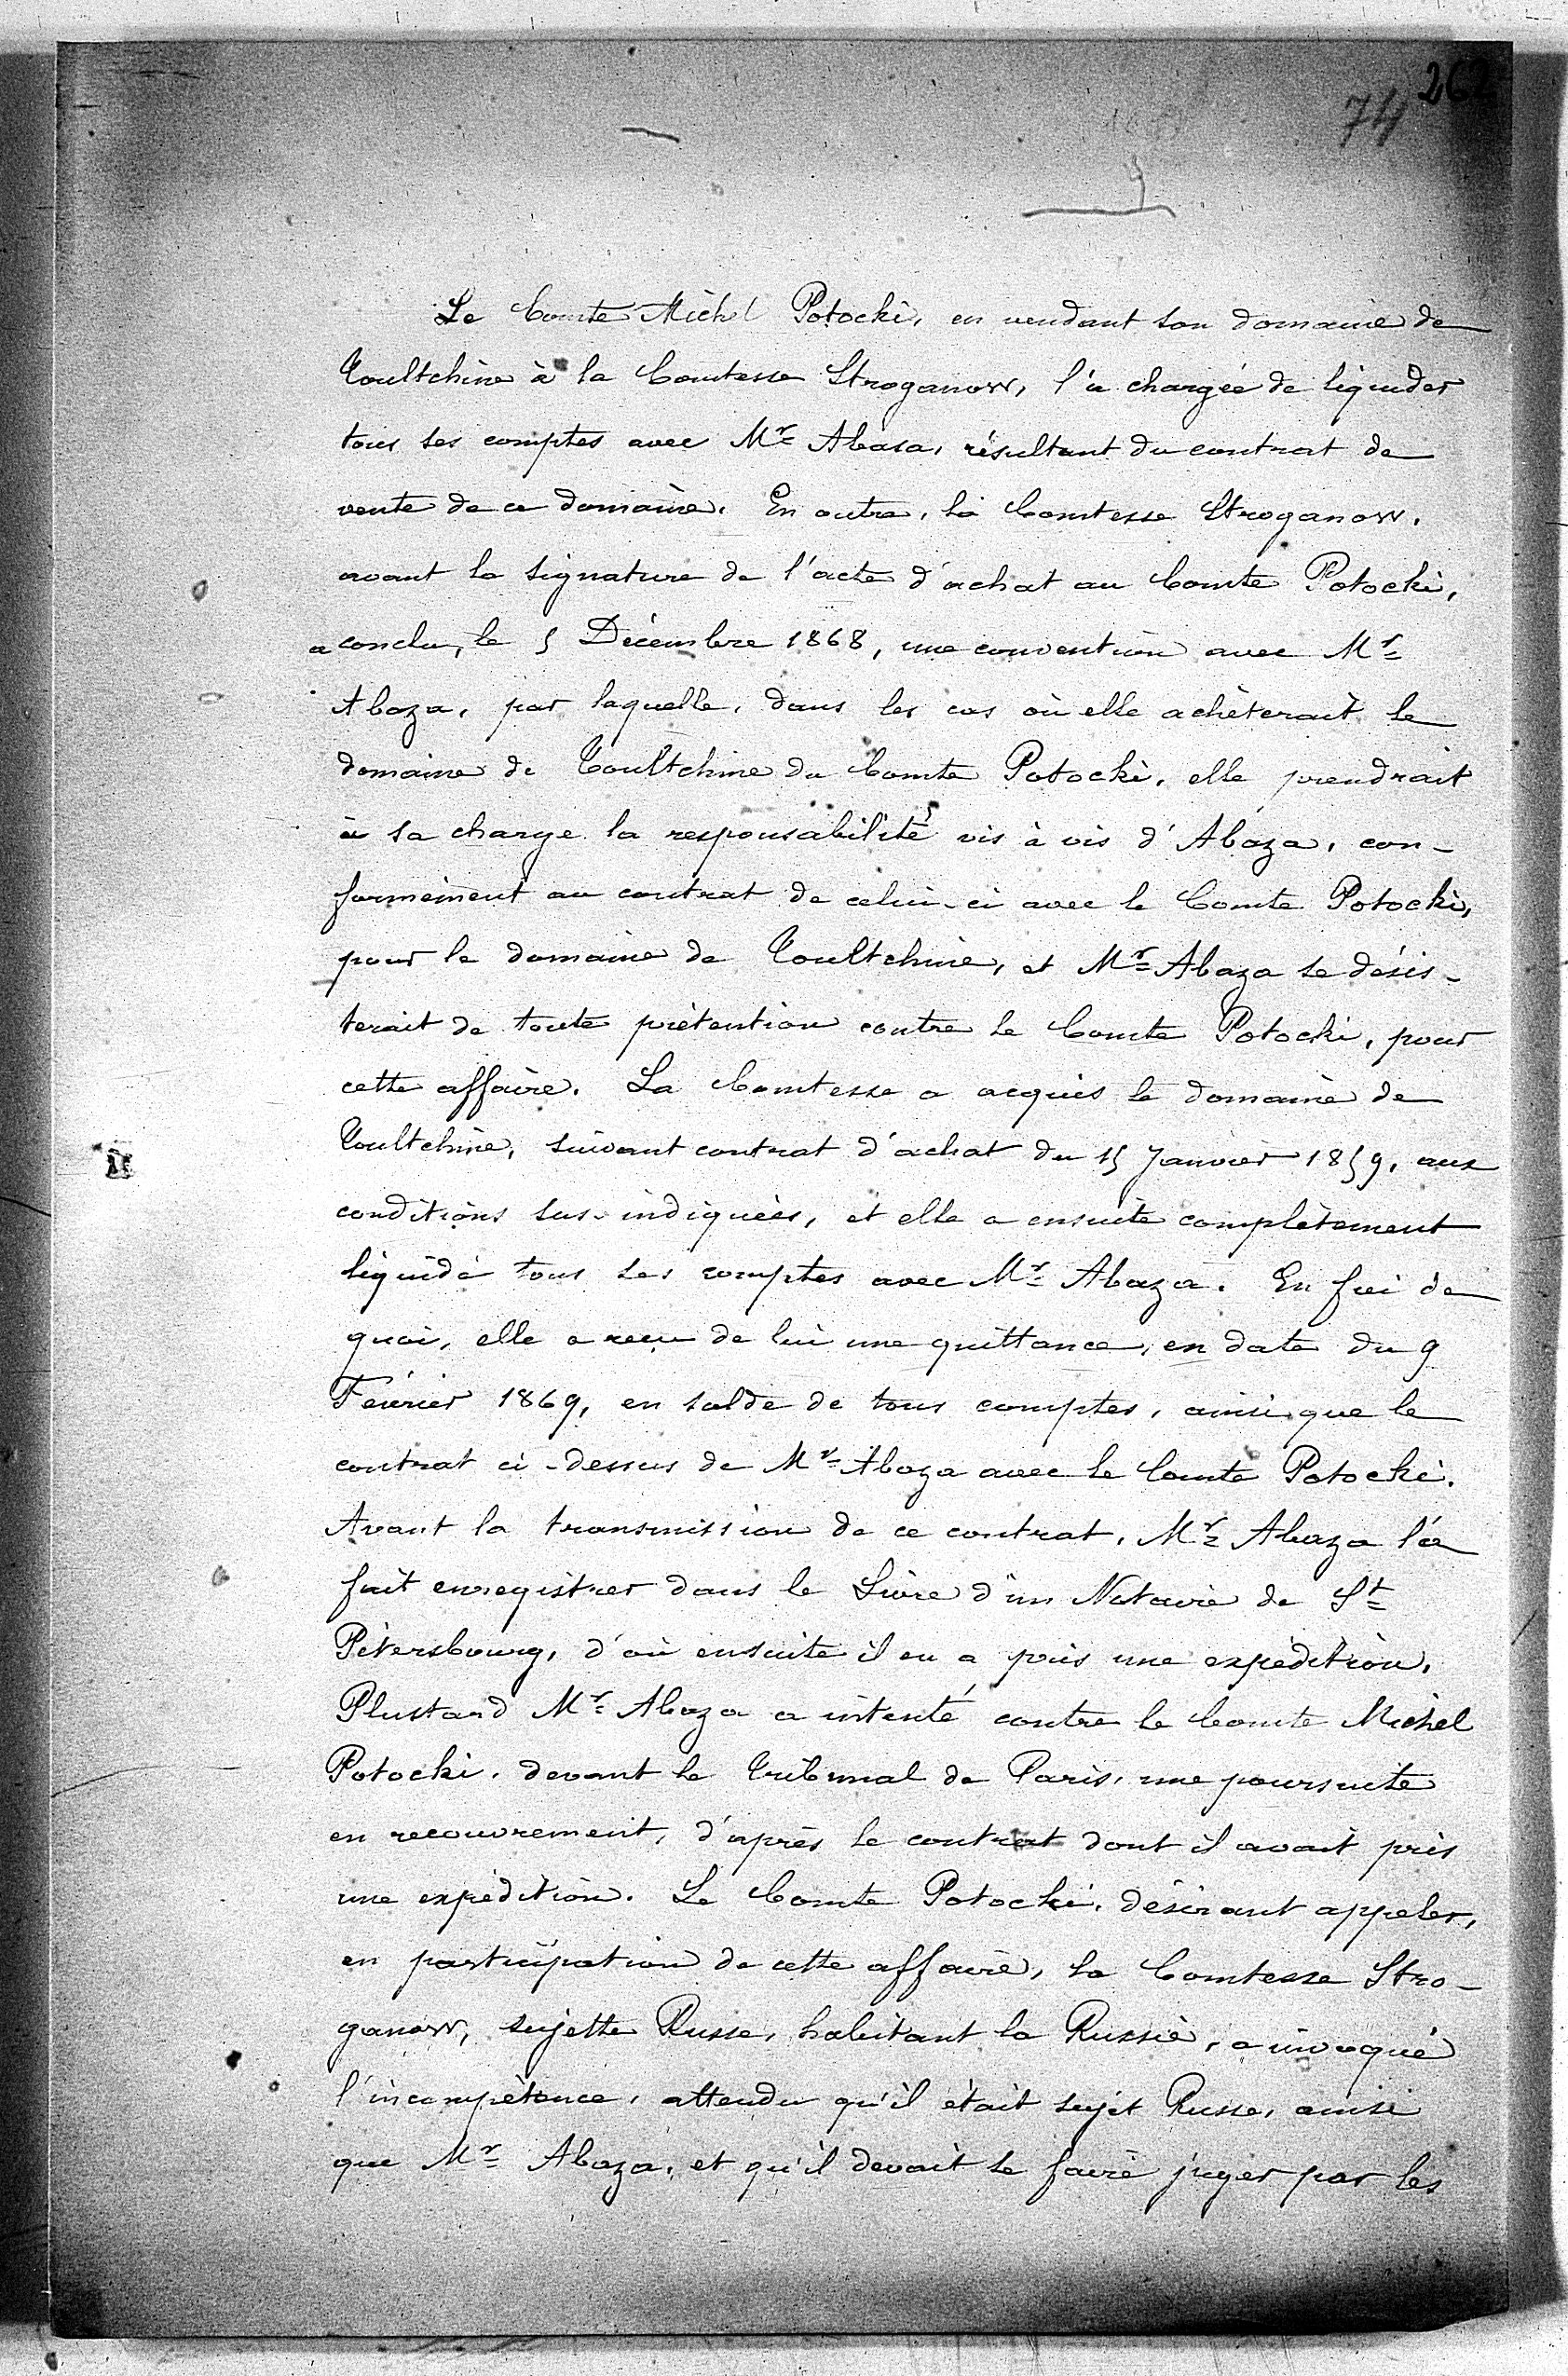 262
74
Le Comte Michel Potocki, en vendant son domaine de
Toultchine à la Comtesse Stroganow, l'a chargée de liquider
tous ses comptes avec Mr Abasa, résultant du contrat de
vente de ce domaine. En outre, la Comtesse Stroganow,
avant la signature de l'acte d'achat au Comte Potocki,
a conclu, le 5 Décembre 1868, une convention avec Mr
Abaza, par laquelle, dans les cas où elle achèterait le
domaine de Toultchine du Comte Potocki, elle prendrait
à sa charge la responsabilité vis à vis d'Abaza, con-
formément au contrat de celui-ci avec le Comte Potocki,
pour le domaine de Toultchine, et Mr Abaza se désis-
terait de toute prétention contre le Comte Potocki, pour
cette affaire. La Comtesse a acquis le domaine de
Toultchine, suivant contrat d'achat du 15 Janvier 1859, aux
conditions sus-indiquées, et elle a ensuite complètement
liquidé tous les comptes avec Mr Abaza. En foi de
quoi, elle a reçu de lui une quittance, en date du 9
Février 1869, en solde de tous comptes, ainsi que le
contrat ci-dessus de Mr Abaza avec le Comte Potocki.
Avant la transmission de ce contrat, Mr Abaza l'a
fait enregistrer dans le Livre d'un Notaire de St
Pétersbourg, d'où ensuite il en a pris une expédition.
Plustard Mr Abaza a intenté contre le Comte Michel
Potocki, devant le Tribunal de Paris, une poursuite
en recouvrement, d'après le contrat dont il avait pris
une expédition. Le Comte Potocki, désirant appeler,
en participation de cette affaire, la Comtesse Stro-
ganow, sujette Russe, habitant la Russie, a invoqué
l'incompétence, attendu qu'il était sujet Russe, ainsi
que Mr Abaza, et qu'il devait se faire juger par les